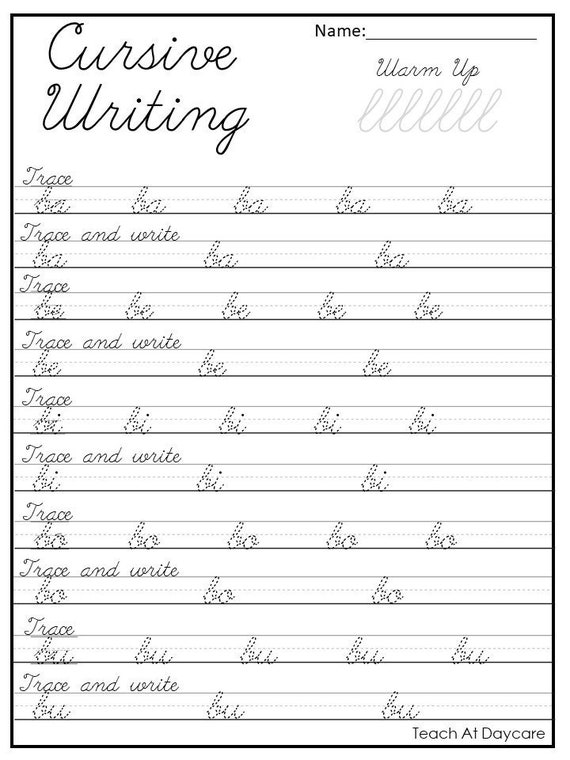 Cursive Writing
Name:
Warm Up
lllllll
Trace
ba ba ba ba ba
Trace and write
ba ba ba
Trace
be be be be be
Trace and write
be be be
Trace
bi bi bi bi bi
Trace and write
bi bi bi
Trace
bo bo bo bo bo
Trace and write
bo bo bo
Trace
bu bu bu bu bu
Trace and write
bu bu bu
Teach At Daycare